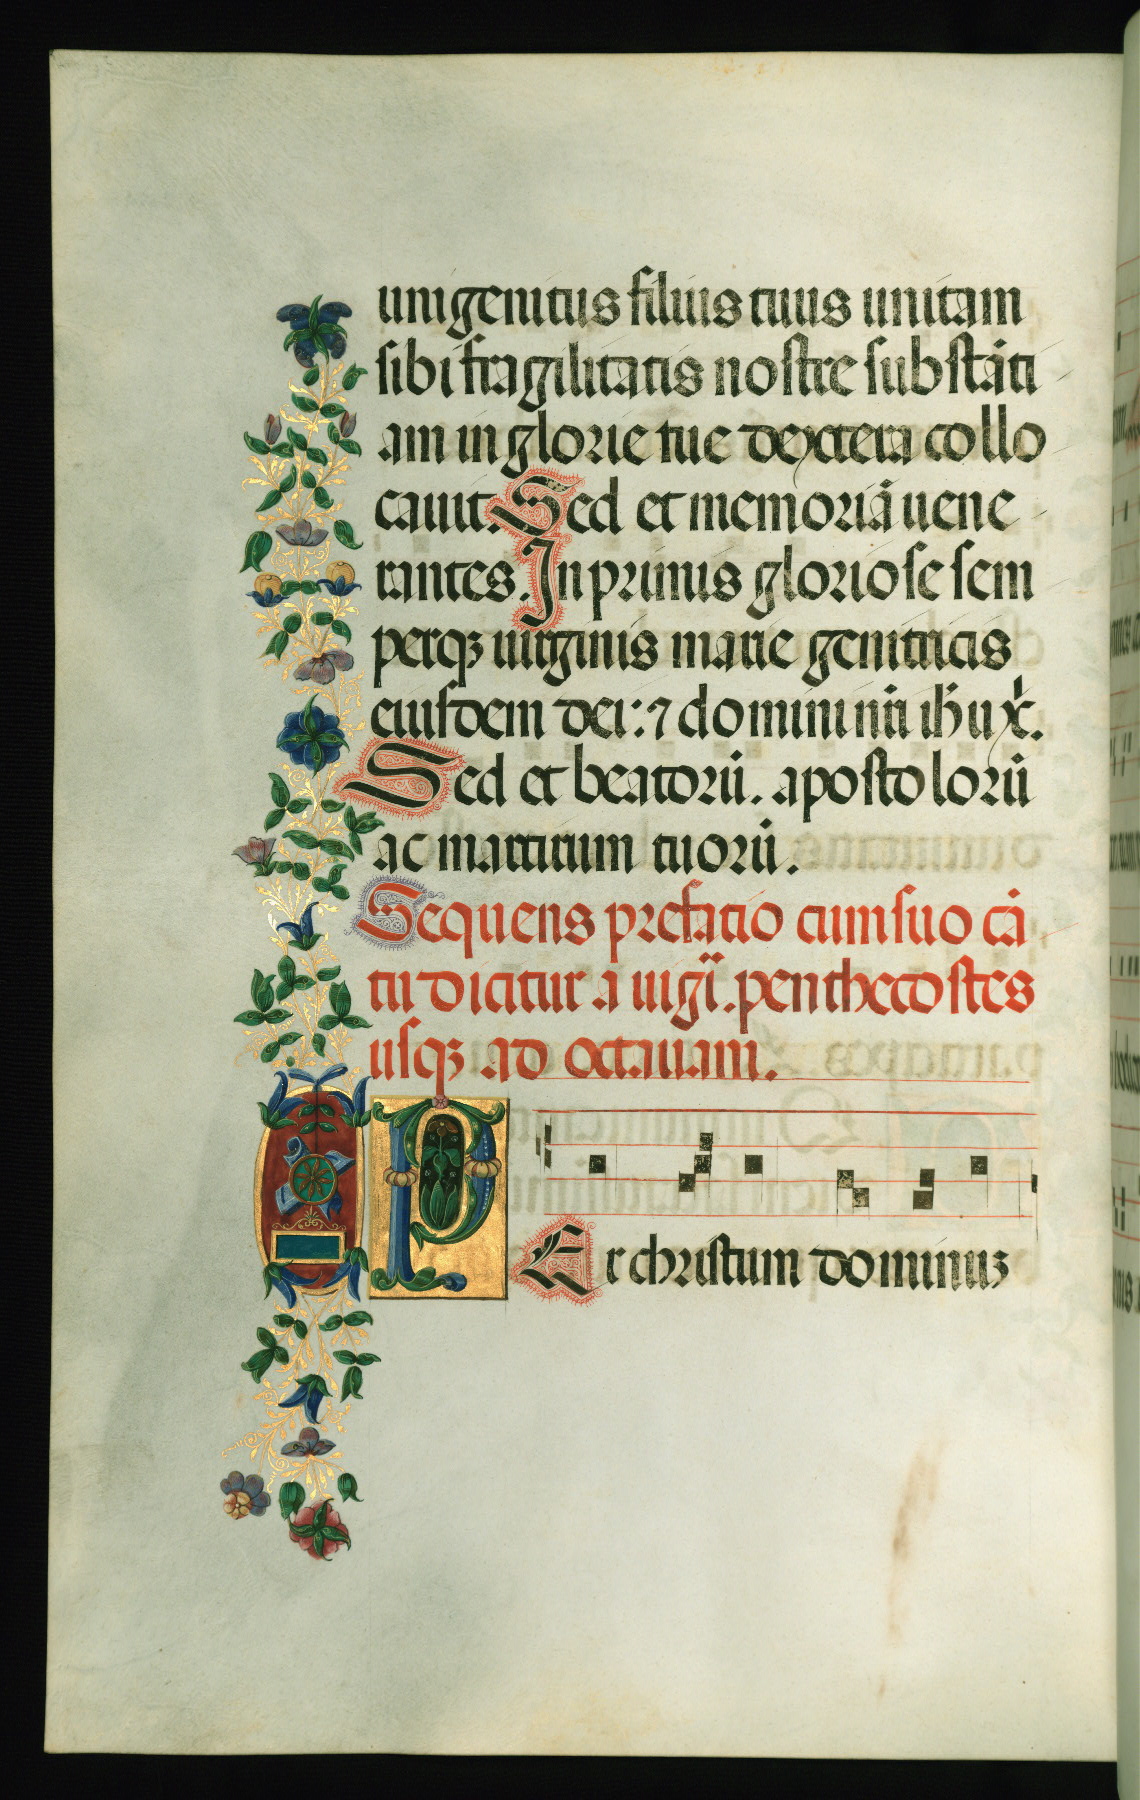 unigenitus filius tuus unitam
sibi fragilitatis nostre substāti
am in glorie tue dextera collo
cauit. Sed et memoriā uene
rantes. In primis gloriose sem
perqꝫ uirginis marie genitricis
eiusdem dei: ⁊ domini nr̄i ih̄u xp̄.
Sed et beatorū. apostolorū
ac martirum tuorū.
Sequens prefatio cum suo cā
tu dicitur a uigi̅. penthecostes
usqꝫ ad octauam.
PEr christum dominuꝫ